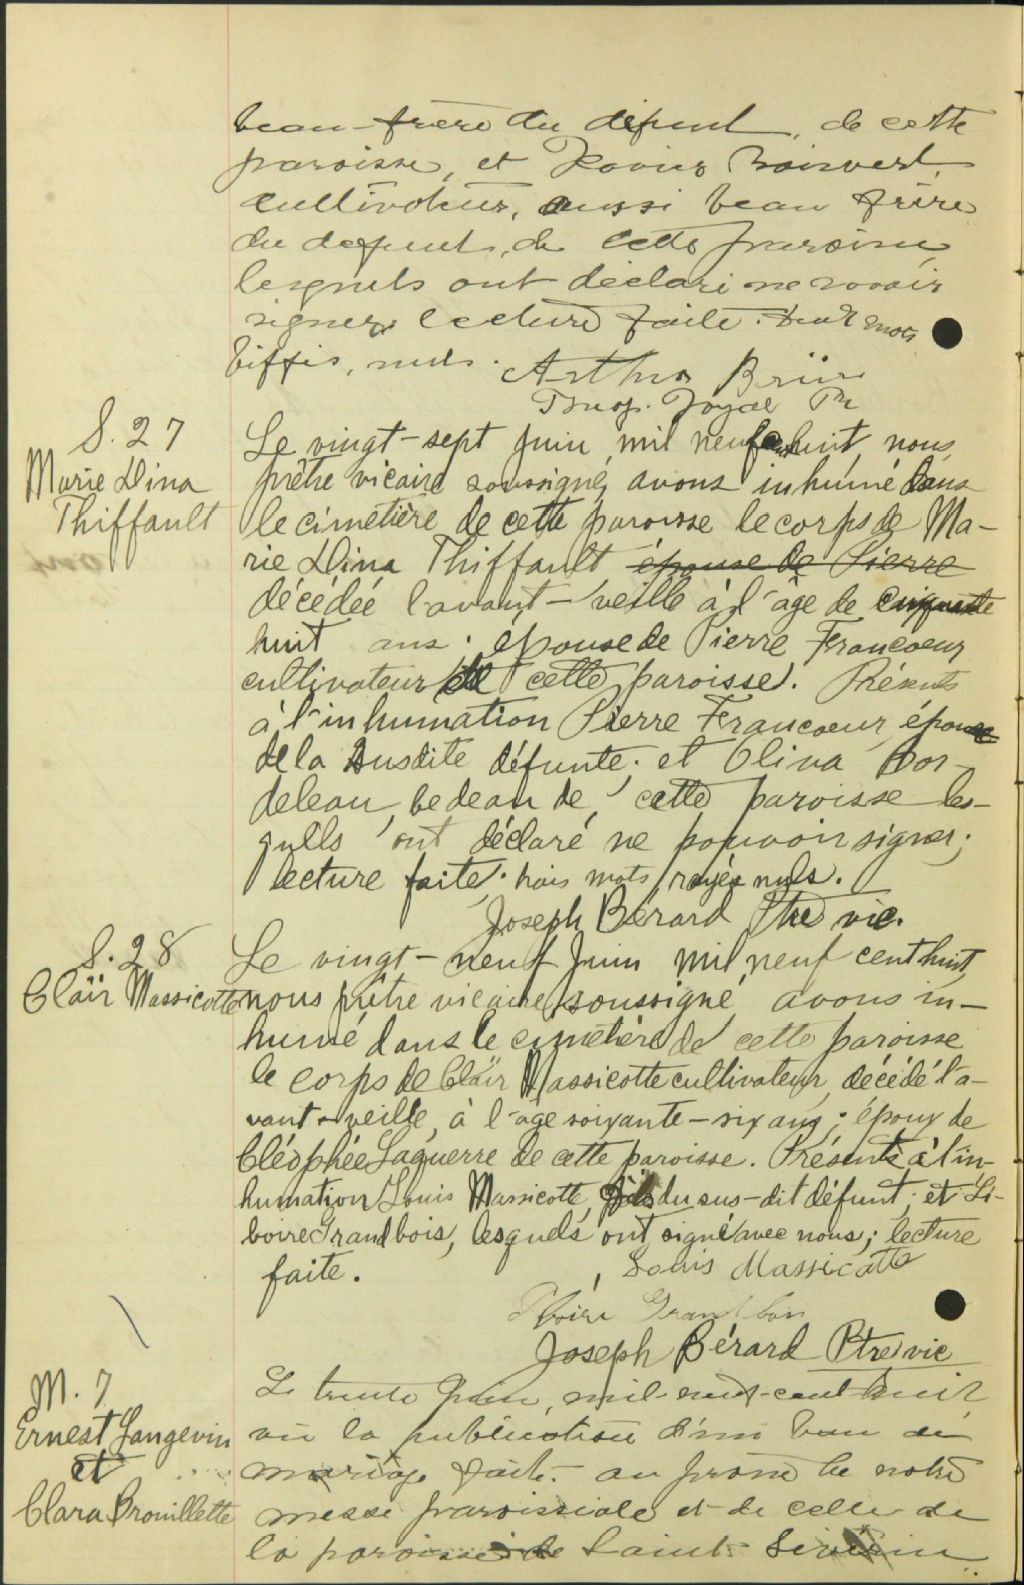 beau-frère du défunt, de cette
paroisse, et Xavier Boisvert,
cultivateur, aussi beau frère
du defunt, de cette paroisse
lesquels ont déclaré ne savoir
signer. lecture faite. deux mots
biffés, nuls.
Arthur
Joyal Ptr
S. 27
Marie Dina
Thiffault
Le vingt-sept Juin mil neuf cent huit, nous,
prêtre vicaire soussigné, avons inhumé dans
le cimetière de cette paroisse le corps de Ma-
rie Dina Thiffault épouse de Pierre
décédée l'avant-veille à l'âge de cinquante
huit ans; épouse de Pierre Francoeur
cultivateur de cette paroisse. Présents
à l'inhumation Pierre Francoeur, époux
de la susdite défunte; et Oliva Bor-
deleau, bedeau de cette paroisse les-
quels ont déclaré ne pouvoir signer;
lecture faite; trois mots rayés nuls.
Joseph Bérard Ptre vic.
S. 28
Claïr Massicotte
Le vingt-neuf Juin mil neuf cent huit,
nous prêtre vicaire soussigné avons in-
humé dans le cimetière de cette paroisse
le corps de Claïr Massicotte cultivateur, décédé l'a-
vant-veille, à l'âge soixante-six ans; époux de
Cléophée Laguerre de cette paroisse. Présents à l'in-
humation Louis Massicotte, fils du sus-dit défunt; et Li-
boire Grandbois, lesquels ont signé avec nous; lecture
faite.
Louis Massicotte
Liboire Grandbois
Joseph Bérard Ptre vic
M. 7
Ernest Langevin
et
Clara Brouillette
Le trente Juin, mil-neuf-cent huit
vu la publication d'un ban de
mariage faite au prône de notre
messe paroissiale et de celle de
la paroisse de Saint Séverin